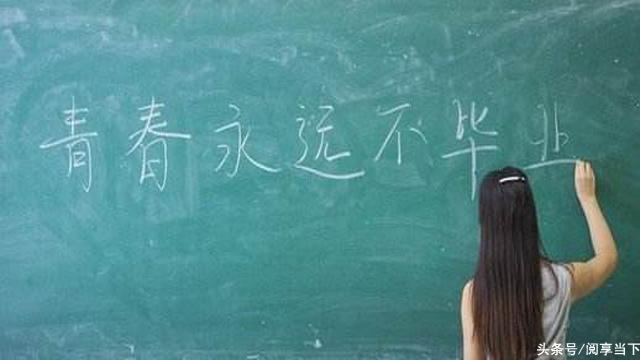 青春永远不毕业
头条号/阅享当下